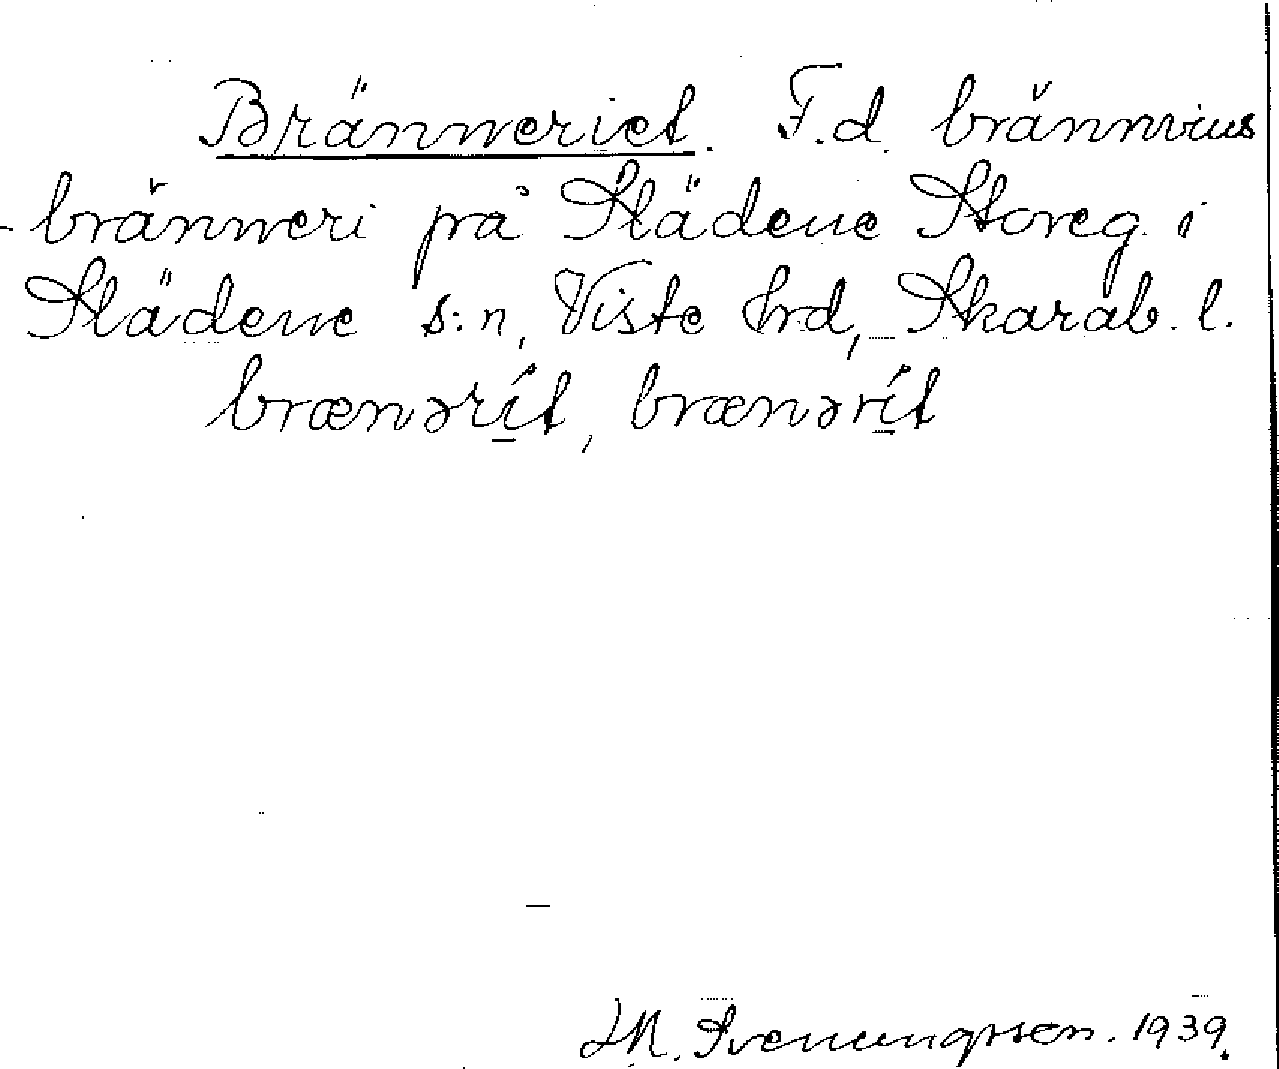 Bränneriet. F.d. brännvins
-bränneri på Slädene Storeg. i
Slädene s:n, Viste hrd, Skarab. l.
brænərít, brænərít
Svenungsson. 1939.